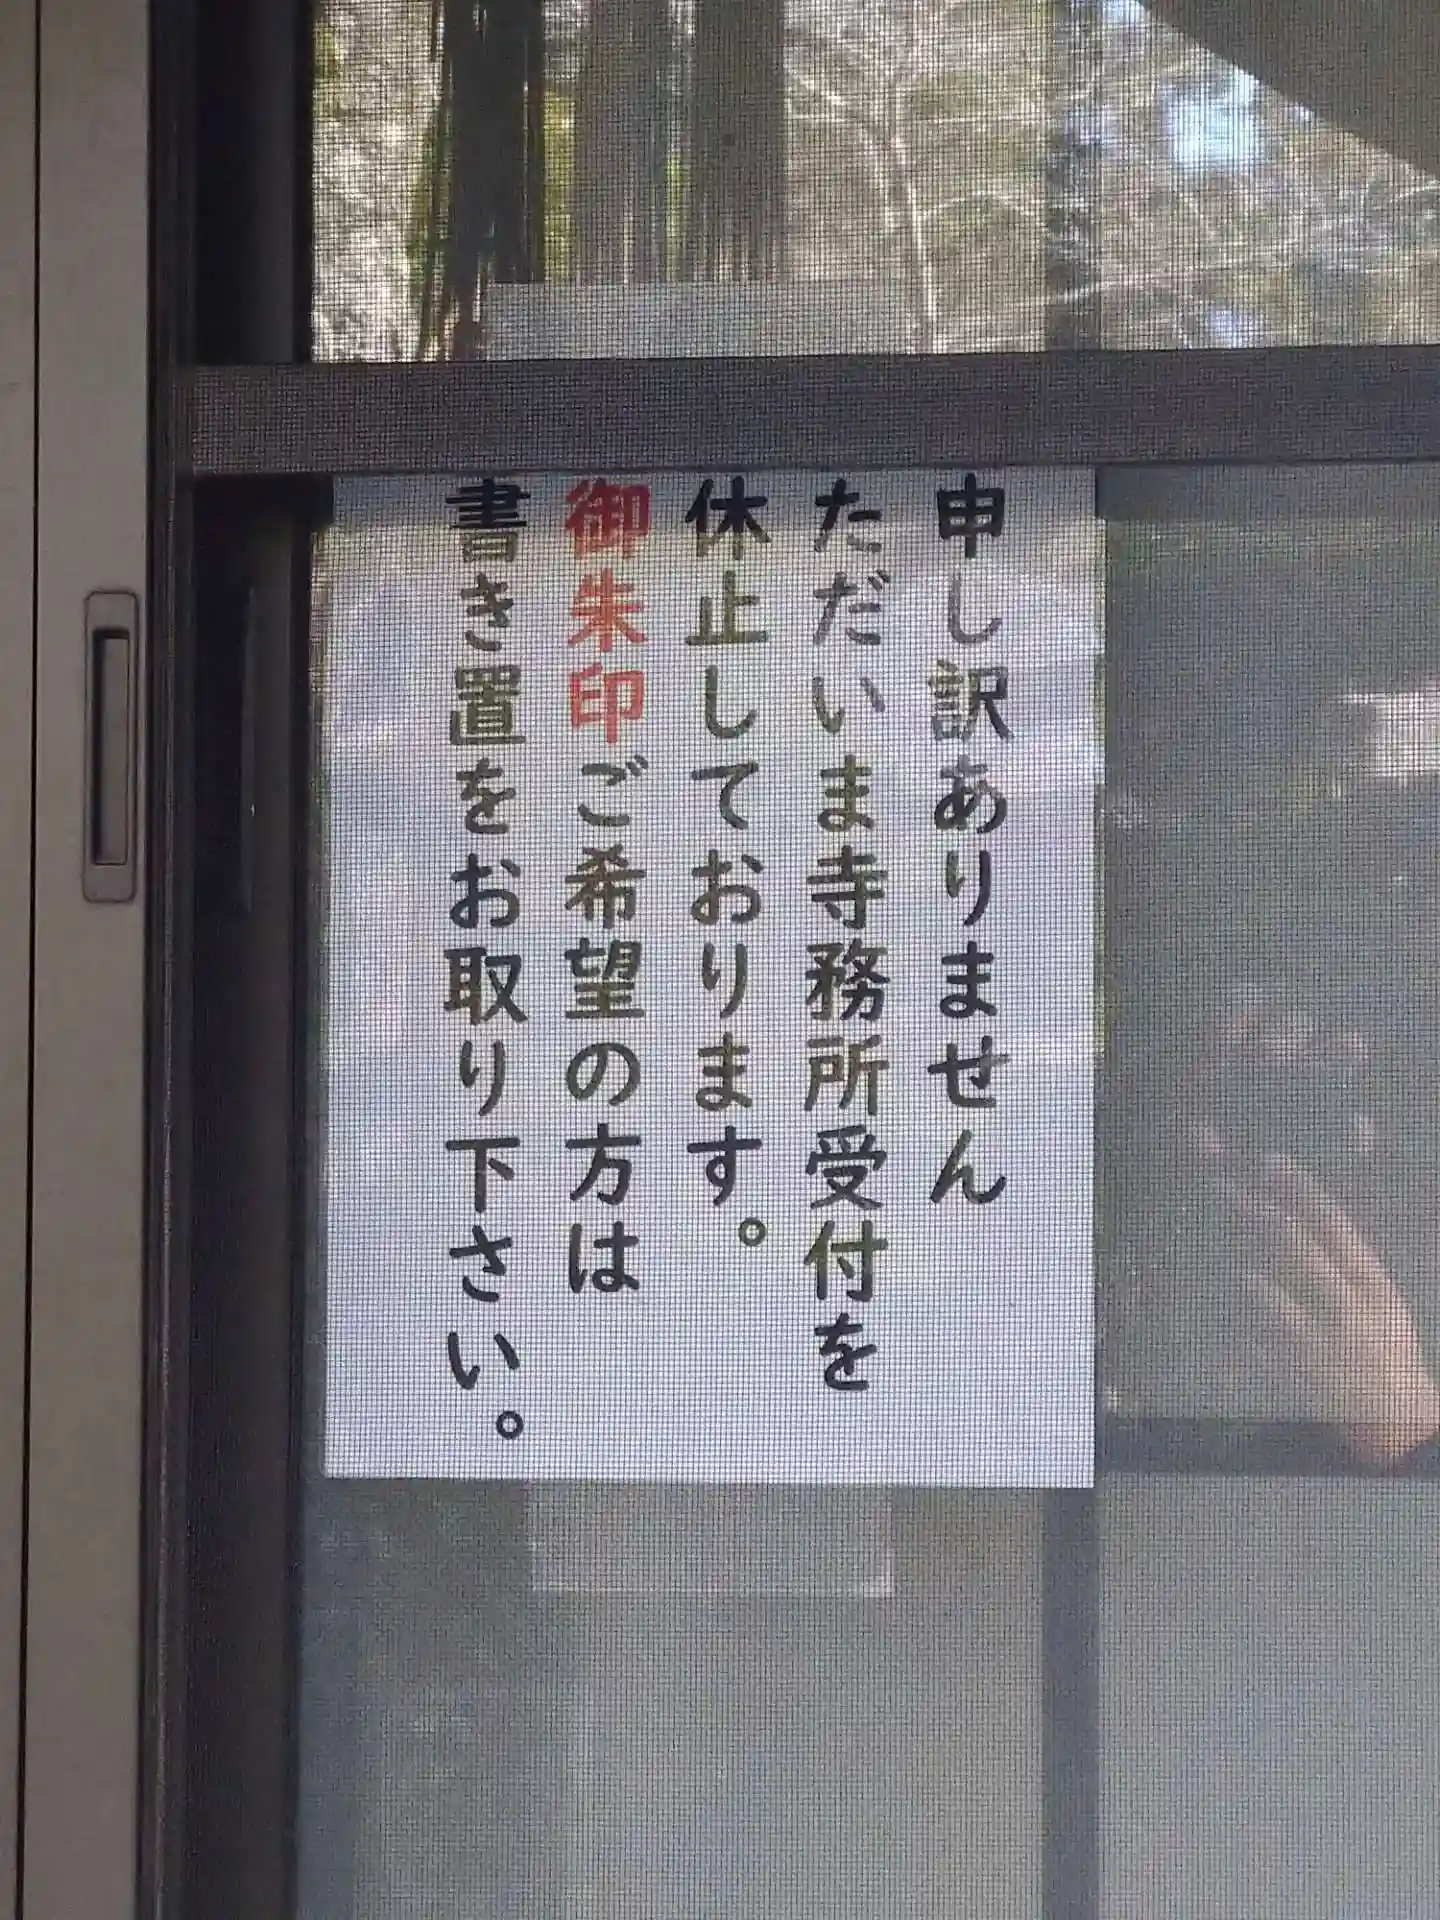 申し訳ありません
ただいま寺務所受付を
休止しております。
御朱印ご希望の方は
書き置をお取り下さい。